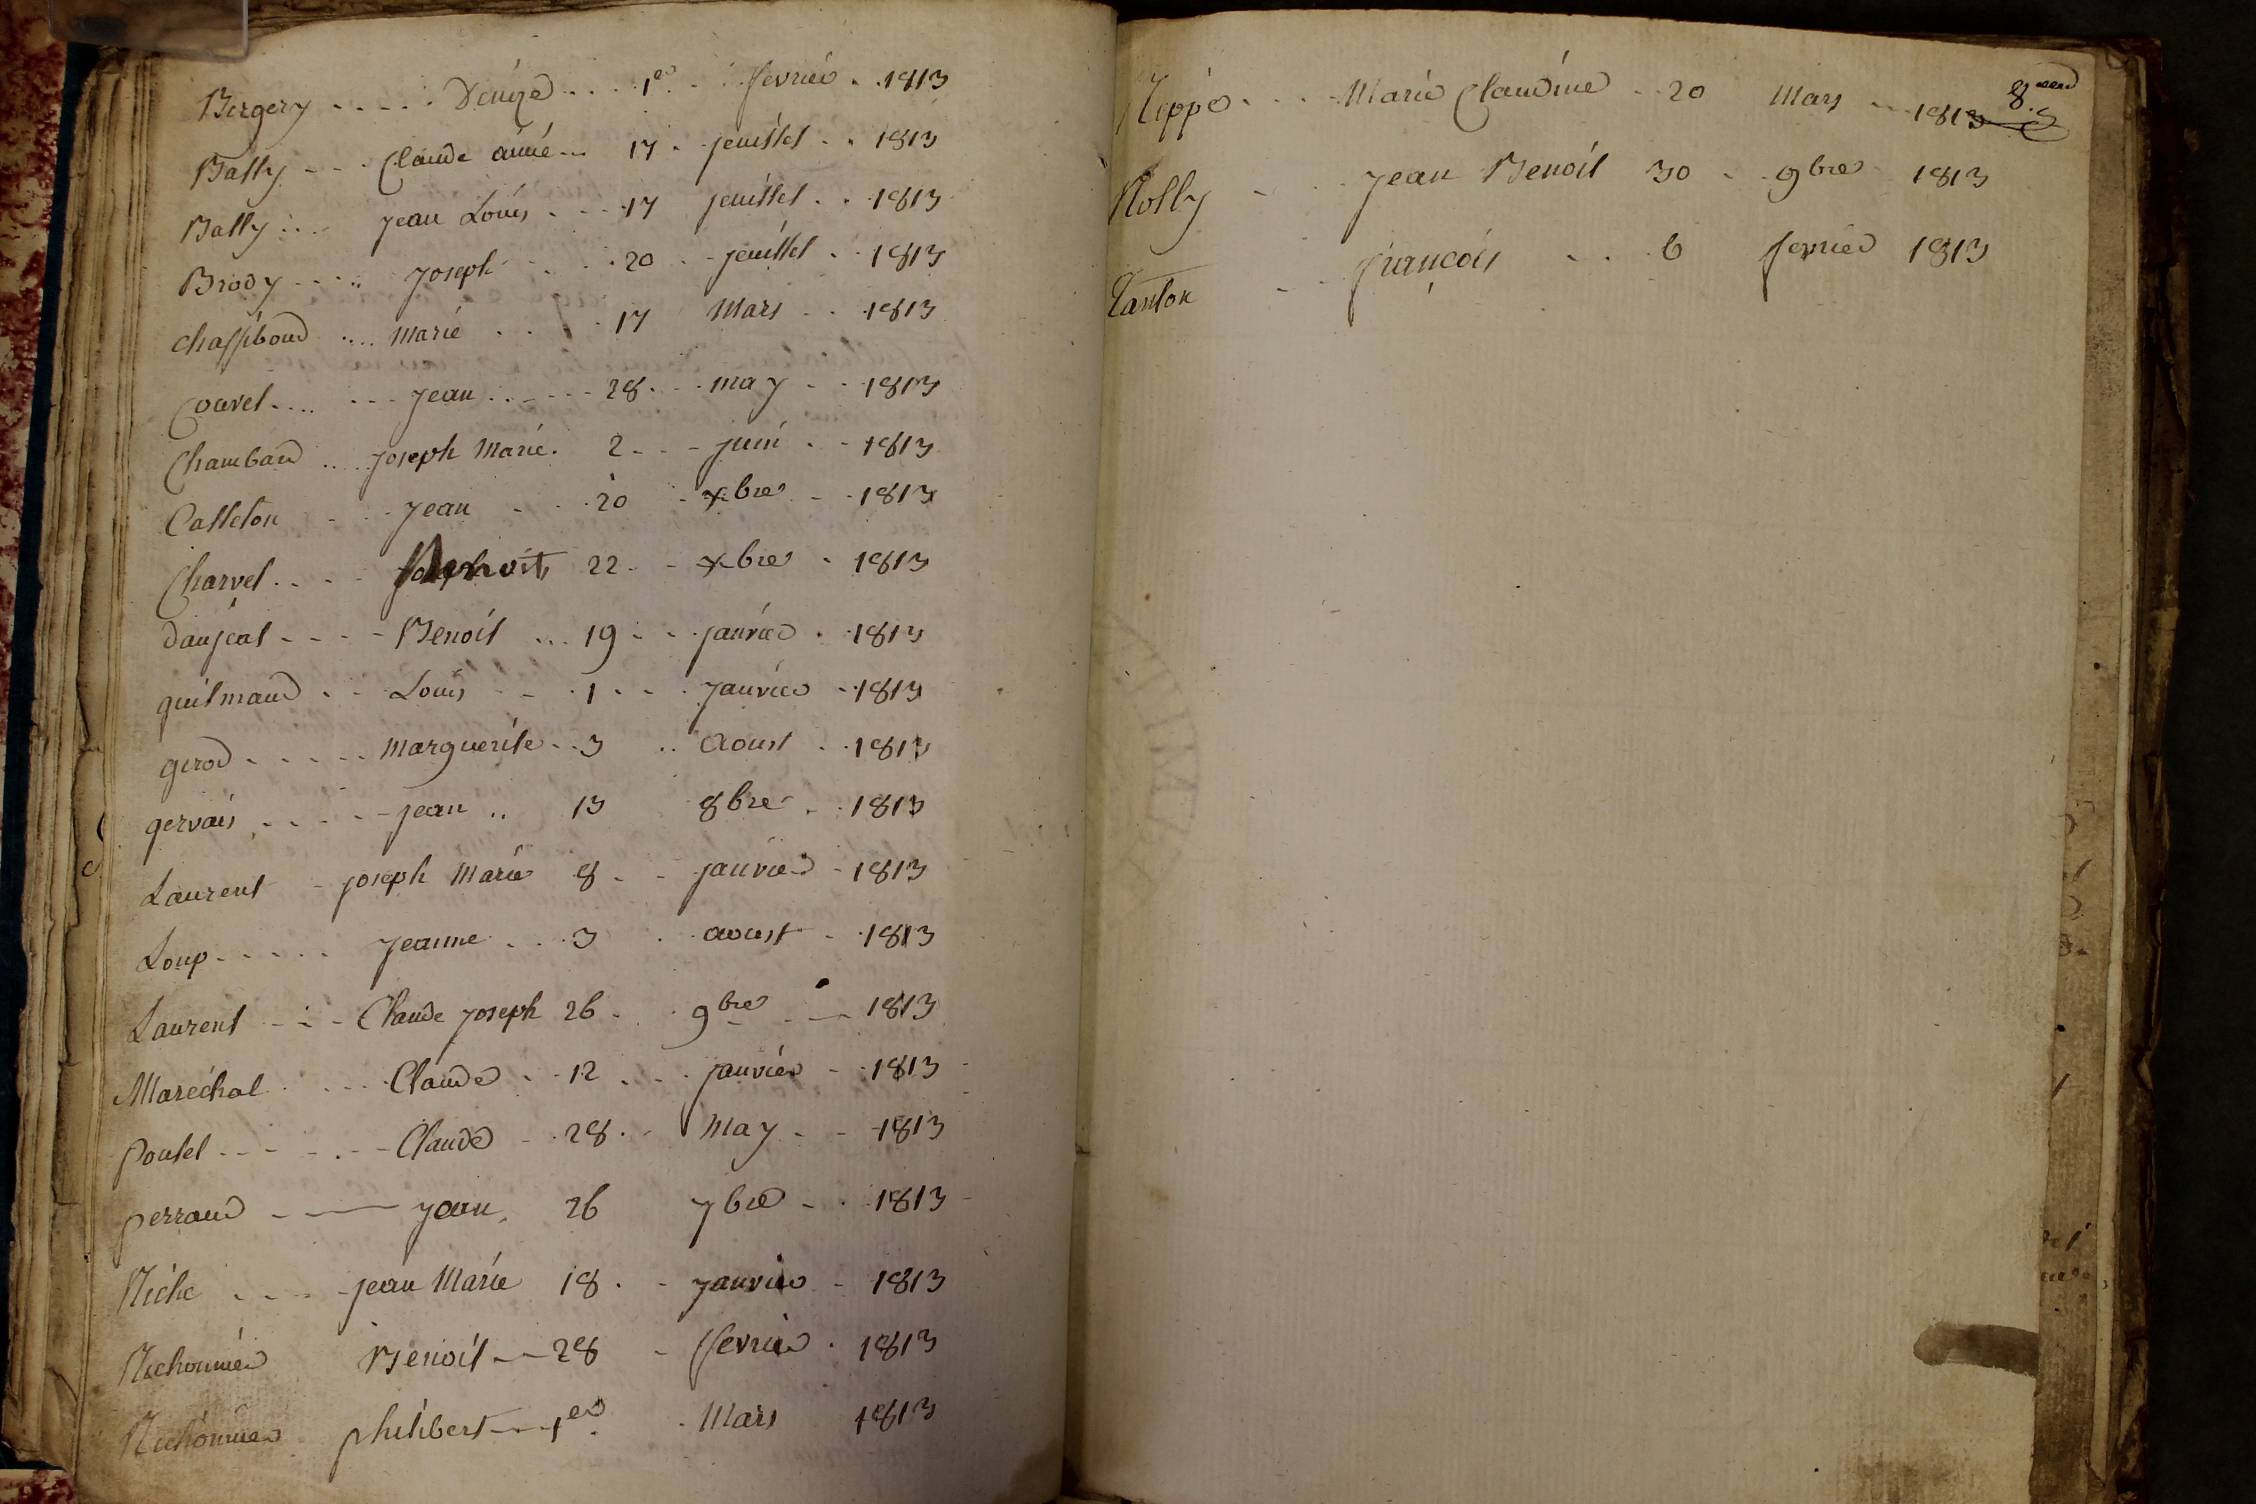 Bergery ..... Denize .... 1er .. fevrier .. 1813
Bally --- Claude aimé ... 17 . jeuillet .. 1813
Bally .... jean Louis . --- 17 jeuillet .. 1813
Brody ---.. joseph .. 20 -- jeuillet .. 1813
chassiboud .... marie ... 17 Mars .. 1813
Couvet .... --- jean .. --- 28 . -- may -- 1813
Chambard .... joseph Marie . 2 --- juin . - 1813
Calleton - - jean - - 20 - xbre - . 1813
Charvet .... 22 . - xbre . 1813
daujeat ---- Benoit ... 19 - - janvier . 1813
guilmaud . - - Louis - - 1 . -- janvier - 1813
gerod ------ marguerite .. 3 .. Aoust . 1813
gervais . ---- jean .. 13 8bre . . 1813
Laurent - joseph Marie 8 . - janvier - 1813
Loup ----- jeanne . . 3 . aoust - . 1813
Laurent - - - Claude joseph 26 . 9bre . -- 1813
Maréchal . --- Claude . - 12 . -- janvier - . 1813
Poutet ------ Claude - . 28 . - May - - 1813
perraud ---- jean . 26 7bre - . 1813
Riche .---- jean Marie 18 . - janvier - 1813
Richonnier Benoit -- 28 - fevrier . 1813
Richonnier philibert --- 1er . . Mars 1813
8.
Rippe . . . - Marie Claudine - 20 Mars - - 1813
Rolly - - jean Benoit 30 - . 9bre - 1813
Tanton - - françois . . 6 fevrier 1813